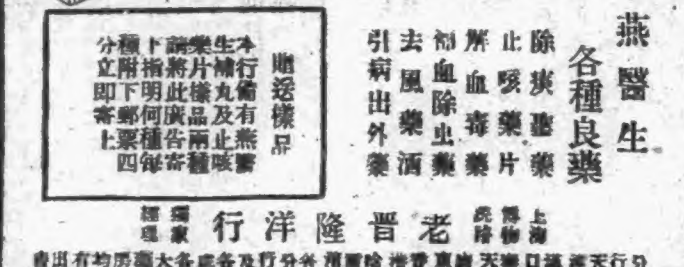 燕醫生
各種良藥
除痰聖藥
止咳藥片
解血毒藥
補血除虫藥
去風藥酒
引病出外藥
贈送樣品
本行備有燕醫
生補丸及止咳
藥片樣品兩種
請將此廣告寄
下指明何種每
種附下郵票四
分立即寄上
上海
博物院路
老晉隆洋行
獨家
經理